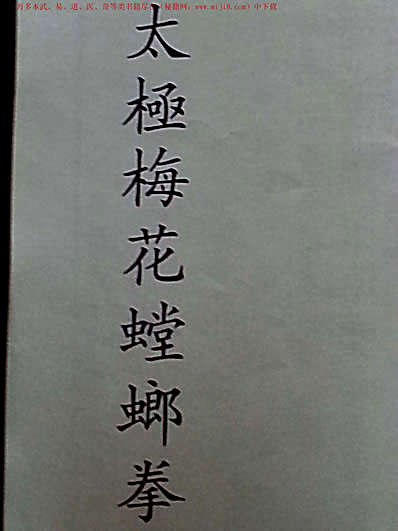 更多本武、易、道、医、奇等类书籍尽在(秘籍网：www.miji8.com)中下载
太極梅花螳螂拳